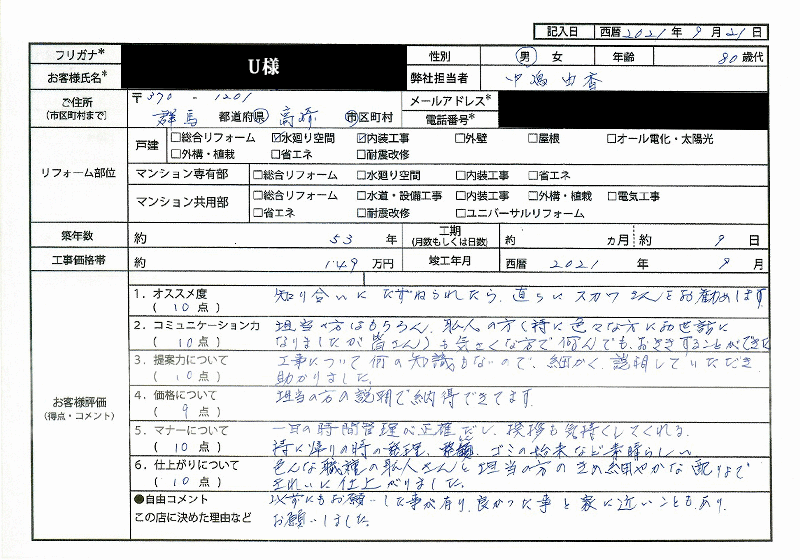 記入日 西暦 2021 年 9 月 21 日
フリガナ* U様 性別 男 女 年齢 80歳代
お客様氏名* 弊社担当者 中嶋 由香
ご住所 〒370-1201 メールアドレス*
(市区町村まで) 群馬 都道府県 高崎 市区町村 電話番号*
リフォーム部位
戸建 □総合リフォーム ☑水廻り空間 ☑内装工事 □外壁 □屋根 □オール電化・太陽光
□外構・植栽 □省エネ □耐震改修
マンション専有部 □総合リフォーム □水廻り空間 □内装工事 □省エネ
マンション共用部 □総合リフォーム □水道・設備工事 □内装工事 □外構・植栽 □電気工事
□省エネ □耐震改修 □ユニバーサルリフォーム
築年数 約 53 年 工期 (月数もしくは日数) 約 ヵ月 約 9 日
工事価格帯 約 149 万円 竣工年月 西暦 2021 年 9 月
お客様評価
(得点・コメント)
1. オススメ度 知り合いにたずねられたら、直ちにスカワさんをお勧めします
( 10 点 )
2. コミュニケーション力 担当の方はもちろん、職人の方(特に色々な方にお世話に
( 10 点 ) なりましたが皆さん)も気さくな方で何んでもおききすることができた
3. 提案力について 工事について何の知識もないので、細かく説明していただき
( 10 点 ) 助かりました。
4. 価格について 担当の方の説明で納得できてます
( 9 点 )
5. マナーについて 一日の時間管理が正確だし、挨拶も気持くしてくれる。
( 10 点 ) 特に帰りの時の整理、ゴミの始末など素晴らしい
6. 仕上がりについて 色んな職種の職人さんと担当の方のきめ細やかな配りで
( 10 点 ) きれいに仕上がりました。
●自由コメント 以前にもお願いした事が有り、良かった事と家に近いこともあり、
この店に決めた理由など お願いしました。